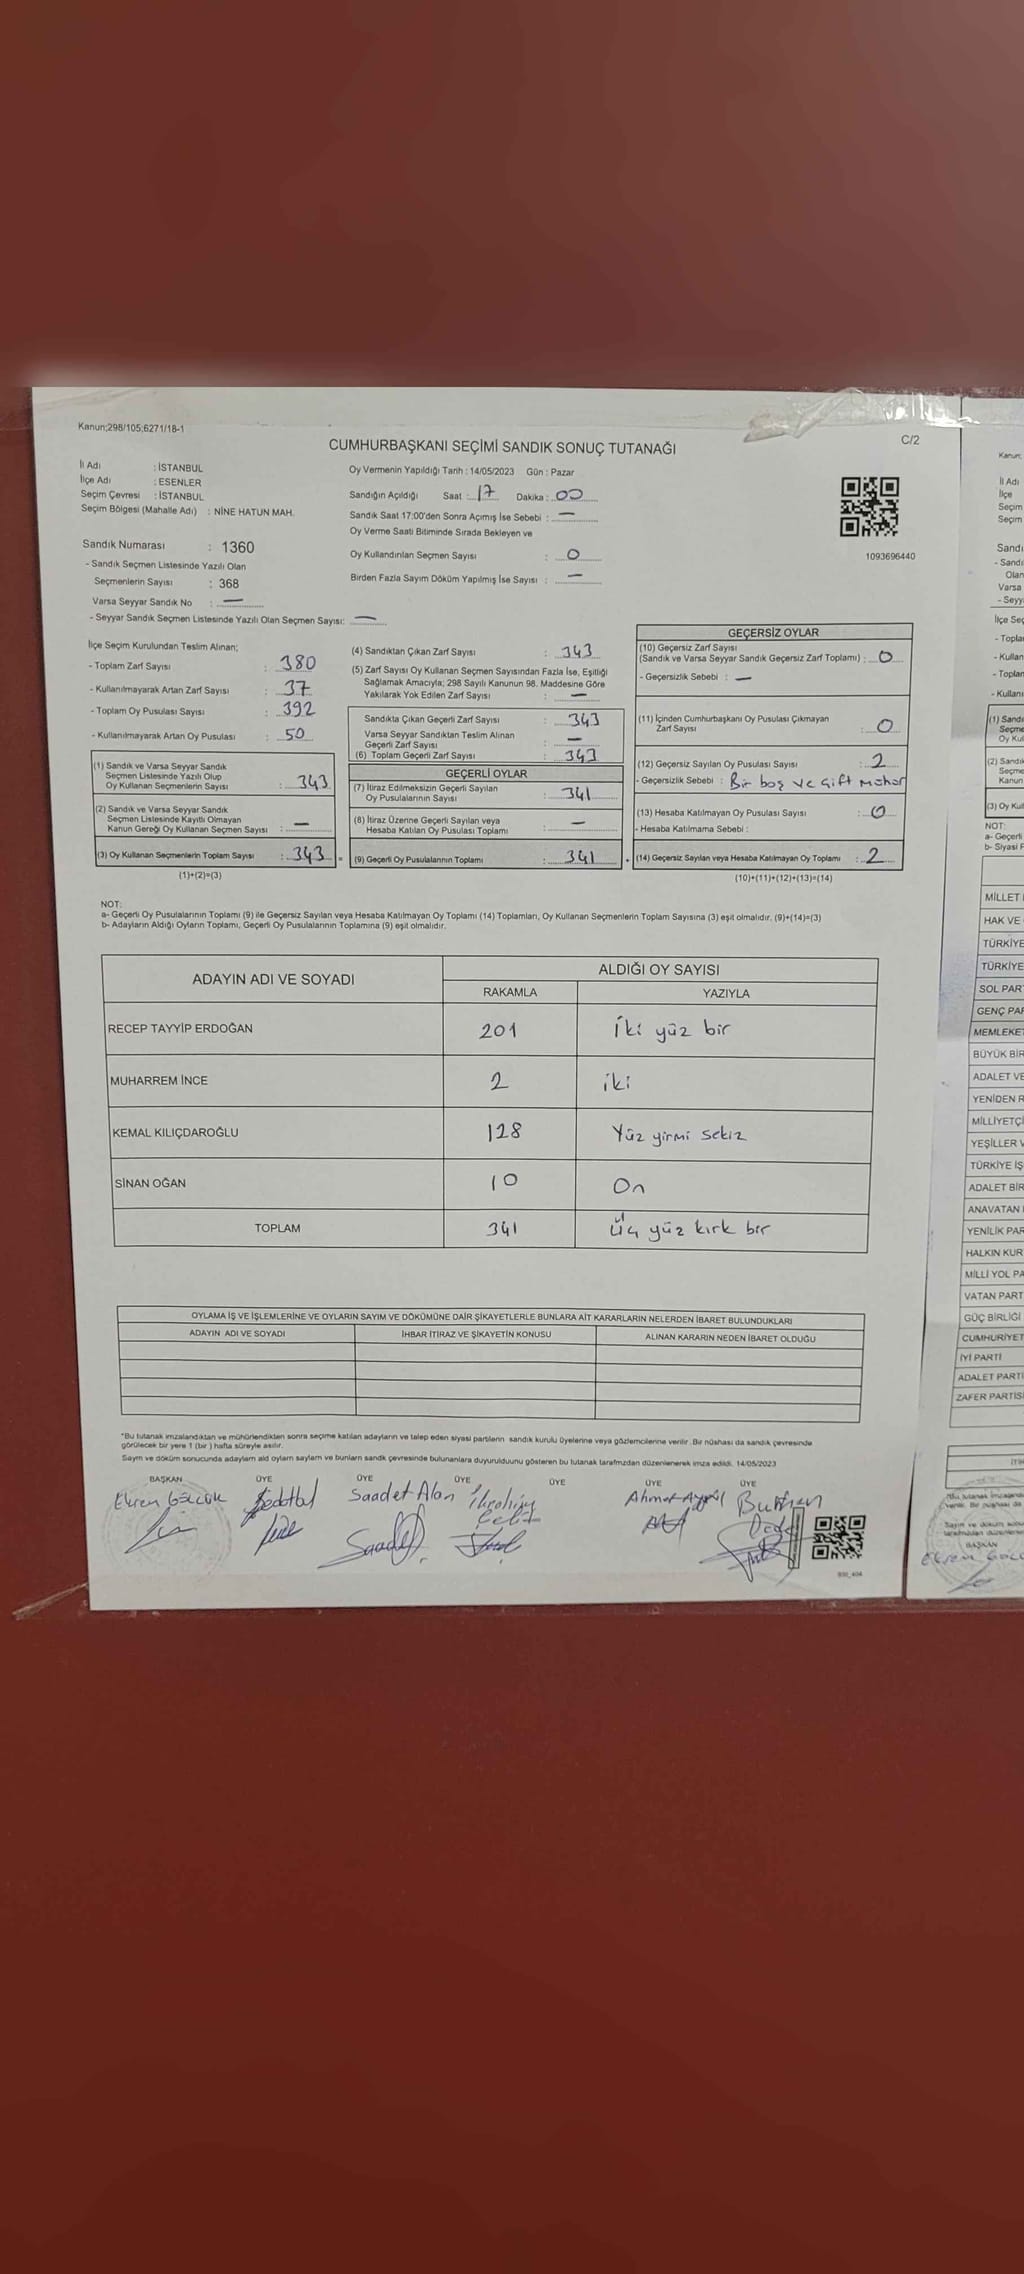 Kanun;298/105;6271/18-1
CUMHURBAŞKANI SEÇİMİ SANDIK SONUÇ TUTANAĞI
C/2
İl Adı : İSTANBUL
İlçe Adı : ESENLER
Seçim Çevresi : İSTANBUL
Seçim Bölgesi (Mahalle Adı) : NİNE HATUN MAH.
Sandık Numarası : 1360
- Sandık Seçmen Listesinde Yazılı Olan
Seçmenlerin Sayısı : 368
Varsa Seyyar Sandık No : —
- Seyyar Sandık Seçmen Listesinde Yazılı Olan Seçmen Sayısı: —
Oy Vermenin Yapıldığı Tarih : 14/05/2023 Gün : Pazar
Sandığın Açıldığı Saat : 17 Dakika : 00
Sandık Saat 17:00'den Sonra Açımış İse Sebebi : —
Oy Verme Saati Bitiminde Sırada Bekleyen ve
Oy Kullandırılan Seçmen Sayısı : 0
Birden Fazla Sayım Döküm Yapılmış İse Sayısı : —
1093696440
İlçe Seçim Kurulundan Teslim Alınan;
- Toplam Zarf Sayısı : 380
- Kullanılmayarak Artan Zarf Sayısı : 37
- Toplam Oy Pusulası Sayısı : 392
- Kullanılmayarak Artan Oy Pusulası : 50
(1) Sandık ve Varsa Seyyar Sandık
Seçmen Listesinde Yazılı Olup
Oy Kullanan Seçmenlerin Sayısı : 343
(2) Sandık ve Varsa Seyyar Sandık
Seçmen Listesinde Kayıtlı Olmayan
Kanun Gereği Oy Kullanan Seçmen Sayısı : —
(3) Oy Kullanan Seçmenlerin Toplam Sayısı : 343 =
(1)+(2)=(3)
(4) Sandıktan Çıkan Zarf Sayısı : 343
(5) Zarf Sayısı Oy Kullanan Seçmen Sayısından Fazla İse, Eşitliği
Sağlamak Amacıyla; 298 Sayılı Kanunun 98. Maddesine Göre
Yakılarak Yok Edilen Zarf Sayısı : —
Sandıkta Çıkan Geçerli Zarf Sayısı : 343
Varsa Seyyar Sandıktan Teslim Alınan
Geçerli Zarf Sayısı : —
(6) Toplam Geçerli Zarf Sayısı : 343
GEÇERLİ OYLAR
(7) İtiraz Edilmeksizin Geçerli Sayılan
Oy Pusulalarının Sayısı : 341
(8) İtiraz Üzerine Geçerli Sayılan veya
Hesaba Katılan Oy Pusulası Toplamı : —
(9) Geçerli Oy Pusulalarının Toplamı : 341 +
GEÇERSİZ OYLAR
(10) Geçersiz Zarf Sayısı
(Sandık ve Varsa Seyyar Sandık Geçersiz Zarf Toplamı) : 0
- Geçersizlik Sebebi : —
(11) İçinden Cumhurbaşkanı Oy Pusulası Çıkmayan
Zarf Sayısı : 0
(12) Geçersiz Sayılan Oy Pusulası Sayısı : 2
- Geçersizlik Sebebi : Bir boş ve çift mühür
(13) Hesaba Katılmayan Oy Pusulası Sayısı : 0
- Hesaba Katılmama Sebebi :
(14) Geçersiz Sayılan veya Hesaba Katılmayan Oy Toplamı : 2
(10)+(11)+(12)+(13)=(14)
NOT:
a- Geçerli Oy Pusulalarının Toplamı (9) ile Geçersiz Sayılan veya Hesaba Katılmayan Oy Toplamı (14) Toplamları, Oy Kullanan Seçmenlerin Toplam Sayısına (3) eşit olmalıdır. (9)+(14)=(3)
b- Adayların Aldığı Oyların Toplamı, Geçerli Oy Pusulalarının Toplamına (9) eşit olmalıdır.
ADAYIN ADI VE SOYADI
ALDIĞI OY SAYISI
RAKAMLA YAZIYLA
RECEP TAYYİP ERDOĞAN 201 İki yüz bir
MUHARREM İNCE 2 iki
KEMAL KILIÇDAROĞLU 128 Yüz yirmi sekiz
SİNAN OĞAN 10 On
TOPLAM 341 Üç yüz kırk bir
OYLAMA İŞ VE İŞLEMLERİNE VE OYLARIN SAYIM VE DÖKÜMÜNE DAİR ŞİKAYETLERLE BUNLARA AİT KARARLARIN NELERDEN İBARET BULUNDUKLARI
ADAYIN ADI VE SOYADI İHBAR İTİRAZ VE ŞİKAYETİN KONUSU ALINAN KARARIN NEDEN İBARET OLDUĞU
*Bu tutanak imzalandıktan ve mühürlendikten sonra seçime katılan adayların ve talep eden siyasi partilerin sandık kurulu üyelerine veya gözlemcilerine verilir. Bir nüshası da sandık çevresinde
görülecek bir yere 1 (bir) hafta süreyle asılır.
Sayım ve döküm sonucunda adayların ald oyların sayların ve bunların sandık çevresinde bulunanlara duyurulduunu gösteren bu tutanak tarafımızdan düzenlenerek imza edildi. 14/05/2023
BAŞKAN ÜYE ÜYE ÜYE ÜYE ÜYE ÜYE
Saadet Alan
Kanun;
İl Adı
İlçe
Seçim
Seçim
Sandı
- Sandı
Olan
Varsa
- Seyy
İlçe Seç
- Topla
- Kullan
- Toplan
- Kullanı
(1) Sandı
Seçme
Oy Kul
(2) Sandık
Seçme
Kanun
(3) Oy Kul
NOT:
a- Geçerli
b- Siyasi P
MİLLET
HAK VE
TÜRKİYE
TÜRKİYE
SOL PAR
GENÇ PAR
MEMLEKET
BÜYÜK BİR
ADALET VE
YENİDEN R
MİLLİYETÇİ
YEŞİLLER V
TÜRKİYE İŞ
ADALET BİR
ANAVATAN
YENİLİK PAR
HALKIN KUR
MİLLİ YOL PA
VATAN PART
GÜÇ BİRLİĞİ
CUMHURİYET
İYİ PARTİ
ADALET PARTİ
ZAFER PARTİS
BAŞKAN